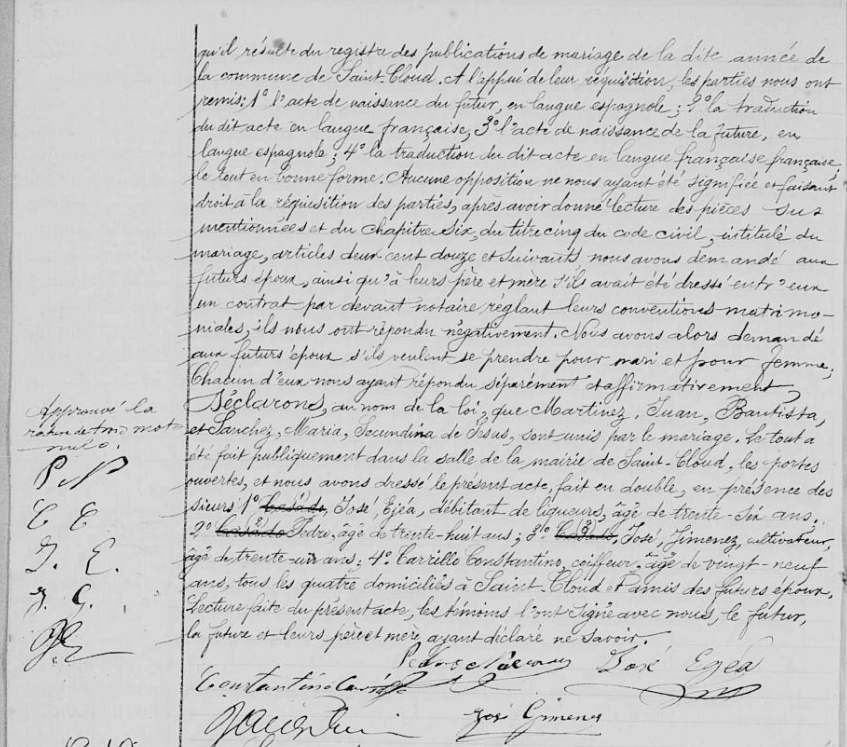 qu'il résulte du registre des publications de mariage de la dite année de
la commune de Saint-Cloud. A l'appui de leur réquisition, les parties nous ont
remis: 1° l'acte de naissance du futur, en langue espagnole; 2° la traduction
du dit acte en langue française; 3° l'acte de naissance de la future, en
langue espagnole; 4° la traduction du dit acte en langue française française,
le tout en bonne forme. Aucune opposition ne nous ayant été signifiée et faisant
droit à la réquisition des parties, après avoir donné lecture des pièces sus
mentionnées et du chapitre six, du titre cinq du code civil, intitulé du
mariage, articles deux cent douze et suivants nous avons demandé aux
futurs époux, ainsi qu'à leurs père et mère s'ils avait été dressé entr'eux
un contrat par devant notaire réglant leurs conventions matrimo-
niales, ils nous ont répondu négativement. Nous avons alors demandé
aux futurs époux s'ils veulent se prendre pour mari et pour femme,
Chacun d'eux nous ayant répondu séparément et affirmativement,
Déclarons, au nom de la loi, que Martinez, Juan, Bautista,
et Sanchez, Maria, Secundina de Jesus, sont unis par le mariage. Le tout a
été fait publiquement dans la salle de la mairie de Saint-Cloud, les portes
ouvertes, et nous avons dressé le présent acte, fait en double, en présence des
sieurs 1° Casado, José, Ejéa, débitant de liqueurs, âgé de trente-six ans.
2° Casado Pedro, âgé de trente-huit ans; 3° Casado, José, Jimenez, cultivateur,
âgé de trente-un ans; 4° Carrillo Constantino, coiffeur, âgé de vingt-neuf
ans, tous les quatre domiciliés à Saint-Cloud et amis des futurs époux.
Lecture faite du présent acte, les témoins l'ont signé avec nous, le futur,
la future et leurs père et mère ayant déclaré ne savoir.
Approuvé la
rature de trois mots
nuls.
P. N
C C
J. E.
J. G.
José Egéa
Constantino Carrillo
José Gimenez